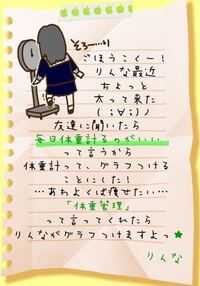 そろ〜…り
ごほうこくー!
りんな最近
ちょっと
太って来た
( ;∀;)ノ
友達に聞いたら
毎日体重計るのがいい
って言うから
体重計って、グラフつける
ことにした!
…あわよくば痩せたい…
「体重管理」
って言ってくれたら
りんながグラフつけますよっ★
りんな